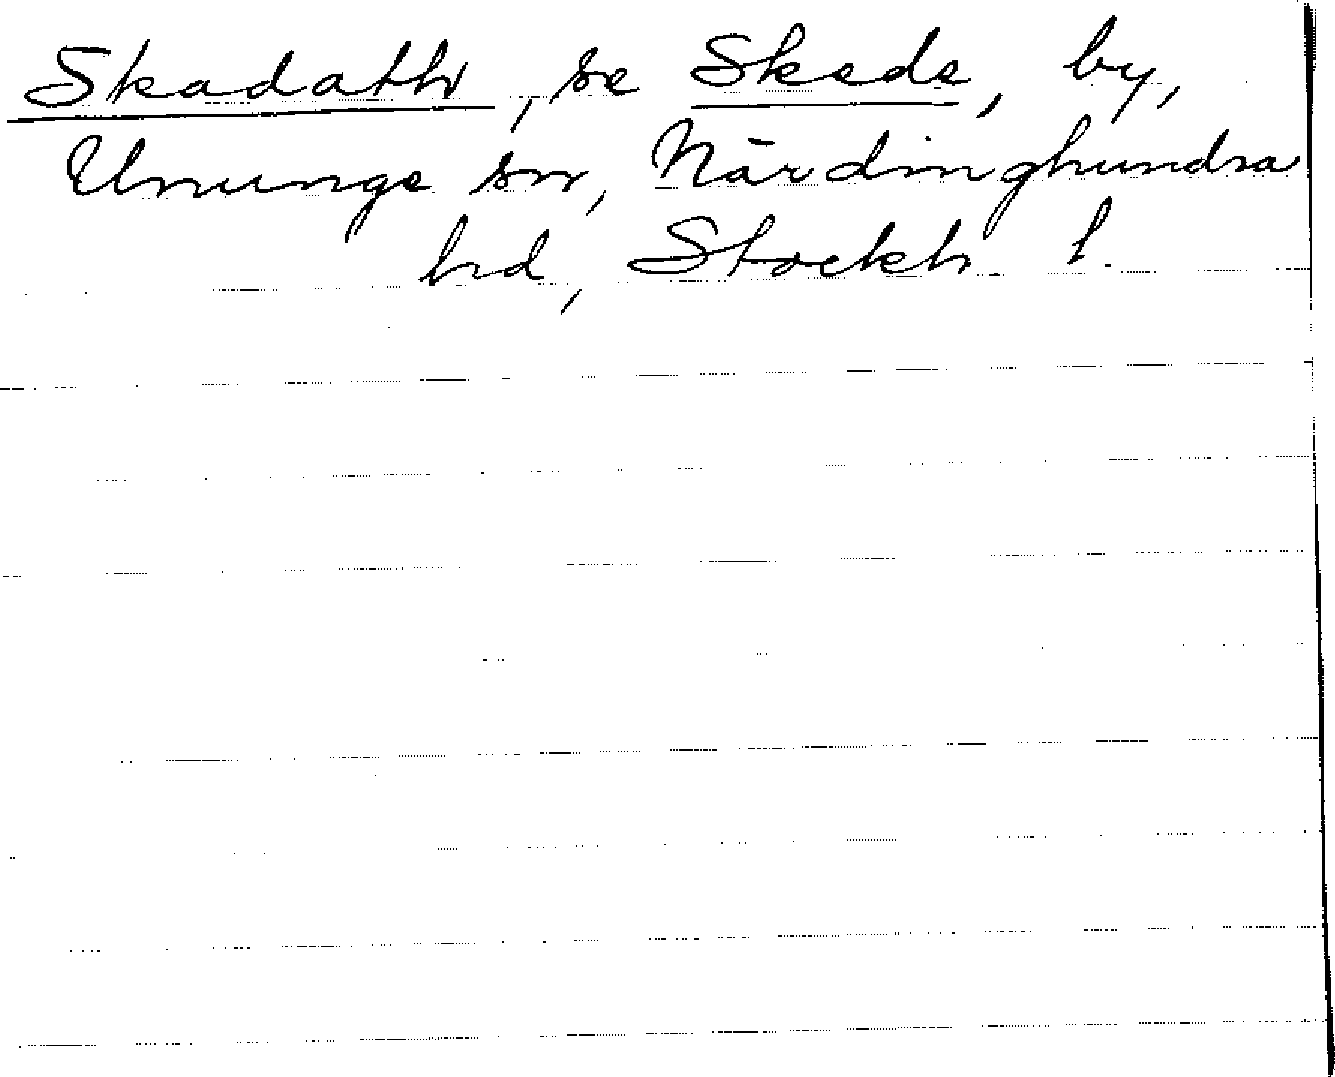 Skadath, se Skede, by,
Ununge sn, Närdinghundra
hd, Stockh l.